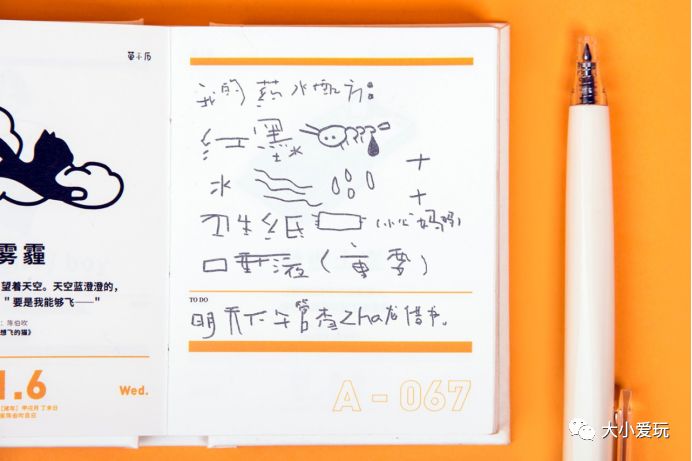 单于历
雾霾
望着天空。天空蓝澄澄的，
"要是我能够飞——"
：陈伯吹
想飞的猫》
1.6
Wed.
我的药水配方：
红墨水
+
水
+
卫生纸 (小心妈妈)
口重液（重要）
TO DO
明天下午管查Zha龙借书。
A - 067
大小爱玩